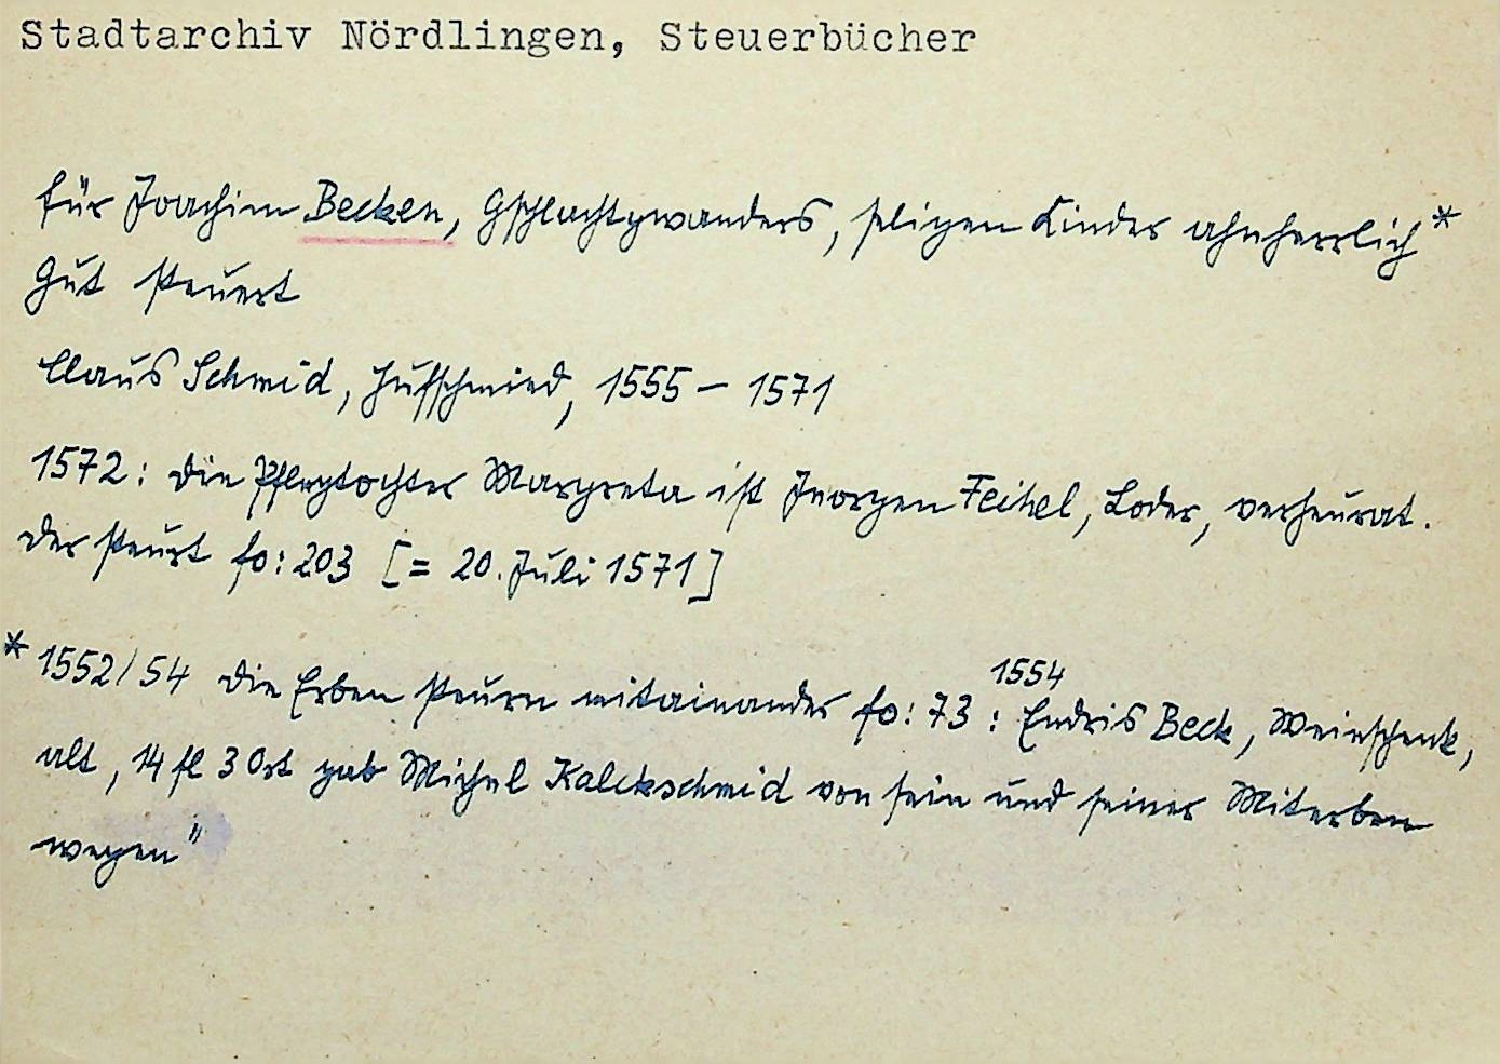 Stadtarchiv Nördlingen, Steuerbücher
für Joachim Becken, Gschlachtgwanders, seligen Kinder ahnherrlich*
Gut steuert
Claus Schmid, Hufschmied, 1555 – 1571
1572: die Pflegtochter Margreta ist Jeorgen Feihel, Loder, verheurat.
der steurt fo: 203 [= 20. Juli 1571]
* 1552/54 die Erben steurn mitainander fo: 73 : 1554 Endris Beck, Weinschenk,
alt, 14 fl 3 Ort gab Michel Kalckschmid von sein und seiner Miterben
wegen"